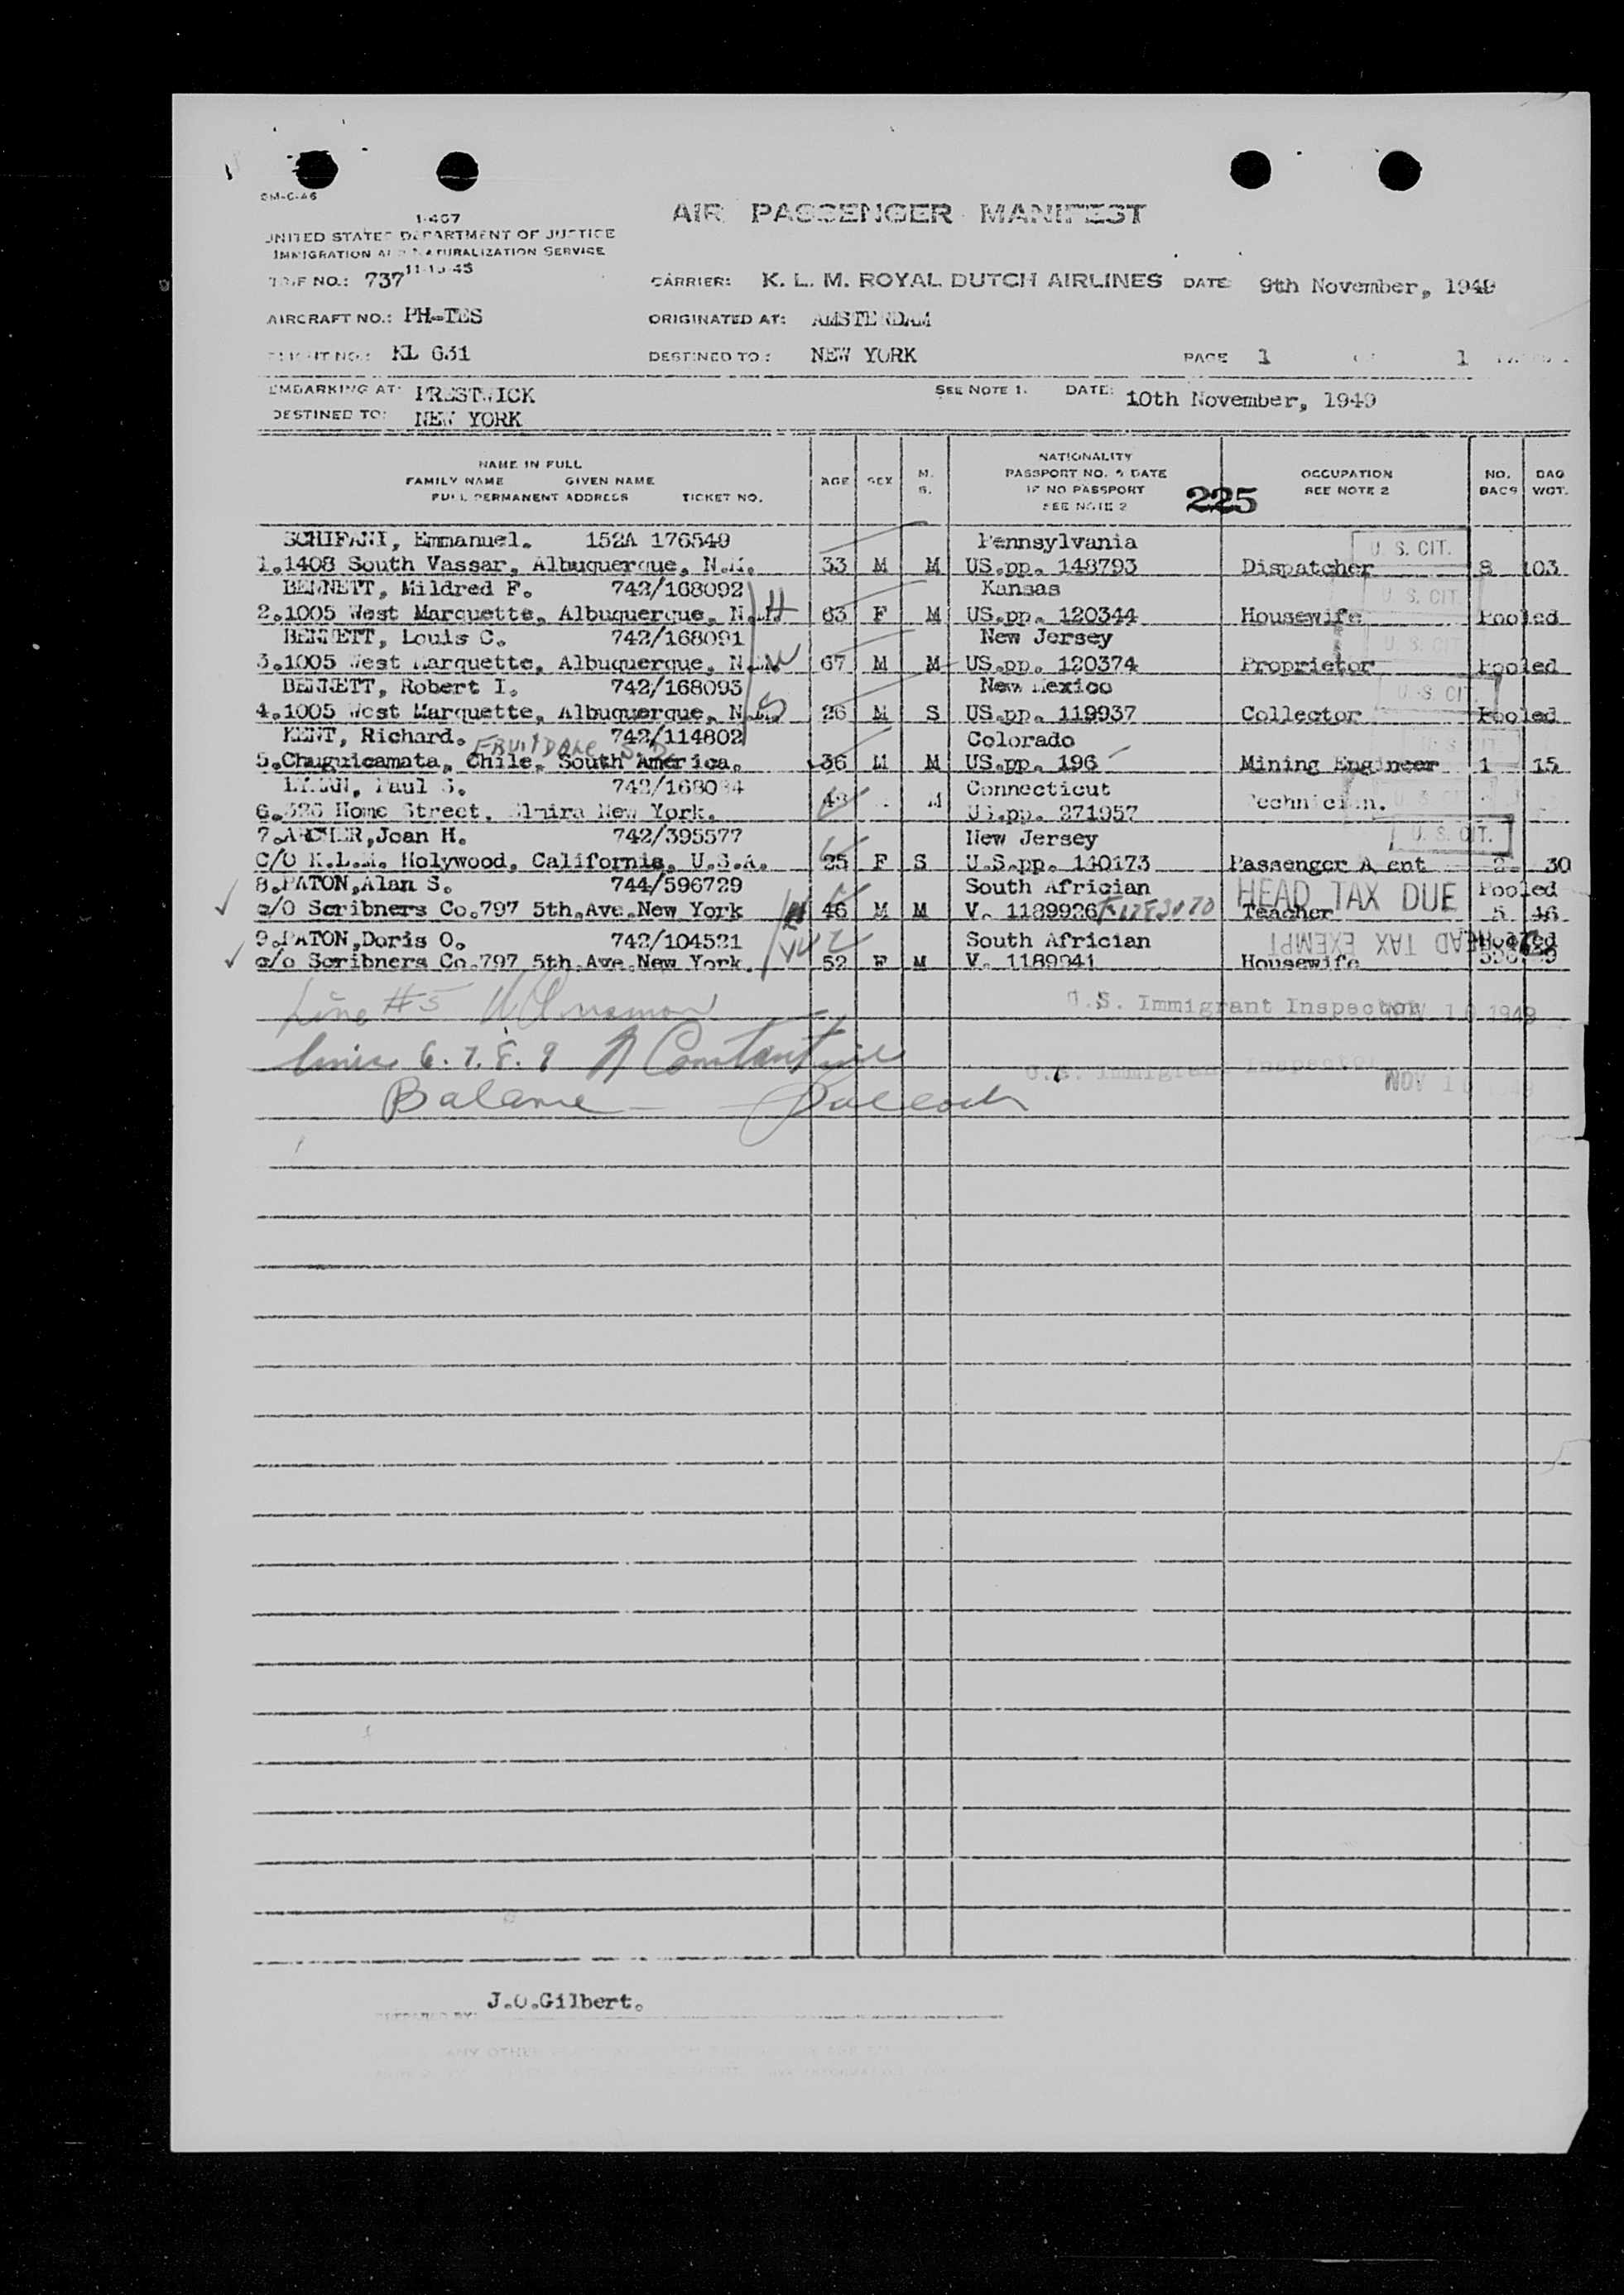 1-467
AIR PASSENGER MANIFEST
UNITED STATES DEPARTMENT OF JUSTICE
IMMIGRATION AND NATURALIZATION SERVICE
NO.: 737
CARRIER: K. L. M. ROYAL DUTCH AIRLINES DATE 9th November, 1949
AIRCRAFT NO.: PH-TES ORIGINATED AT: AMSTERDAM
FLIGHT NO.: KL 631 DESTINED TO: NEW YORK PAGE 1 1
EMBARKING AT: PRESTWICK SEE NOTE 1. DATE: 10th November, 1949
DESTINED TO: NEW YORK
NAME IN FULL
FAMILY NAME GIVEN NAME
FULL PERMANENT ADDRESS TICKET NO.
AGE SEX M. S.
NATIONALITY
PASSPORT NO. & DATE
IF NO PASSPORT
SEE NOTE 2
225
OCCUPATION
SEE NOTE 2
NO. BAGS BAG WGT.
SCHIFANI, Emmanuel. 152A 176549 Pennsylvania U. S. CIT.
1.1408 South Vassar, Albuquerque, N.M. 33 M M US.pp. 148793 Dispatcher 8 103
BENNETT, Mildred F. 742/168092 Kansas U. S. CIT.
2.1005 West Marquette, Albuquerque, N.M. 63 F M US.pp. 120344 Housewife Pooled
BENNETT, Louis C. 742/168091 New Jersey U. S. CIT
3.1005 West Marquette, Albuquerque, N.M. 67 M M US.pp. 120374 Proprietor Pooled
BENNETT, Robert I. 742/168093 New Mexico U. S. CIT
4.1005 West Marquette, Albuquerque, N.M. 26 M S US.pp. 119937 Collector Pooled
KENT, Richard. 742/114802 Colorado
FRUITDALE S.D.
5.Chuguicamata, Chile, South America. 36 M M US.pp. 196 Mining Engineer 1 15
Paul S. Connecticut
6. Home Street, Elmira New York. M US.pp. 271957 Technician.
7.ARCHER,Joan H. 742/395577 New Jersey U. S. CIT.
C/O K.L.M. Holywood, California, U.S.A. 25 F S U.S.pp. 140173 Passenger Agent 2 30
8.PATON,Alan S. 744/596729 South Africian HEAD TAX DUE Pooled
c/O Scribners Co.797 5th.Ave.New York 46 M M V. 1189926 Teacher 46
9.PATON,Doris O. 742/104521 South Africian HEAD TAX EXEMPT Pooled
c/o Scribners Co.797 5th.Ave.New York. 52 F M V. 1189941 Housewife
Line #5 U.S. Immigrant Inspector NOV 10 1949
lines 6. 7. 8. 9 Constantine
U.S. Immigrant Inspector NOV 10
Balance
PREPARED BY: J.O.Gilbert.